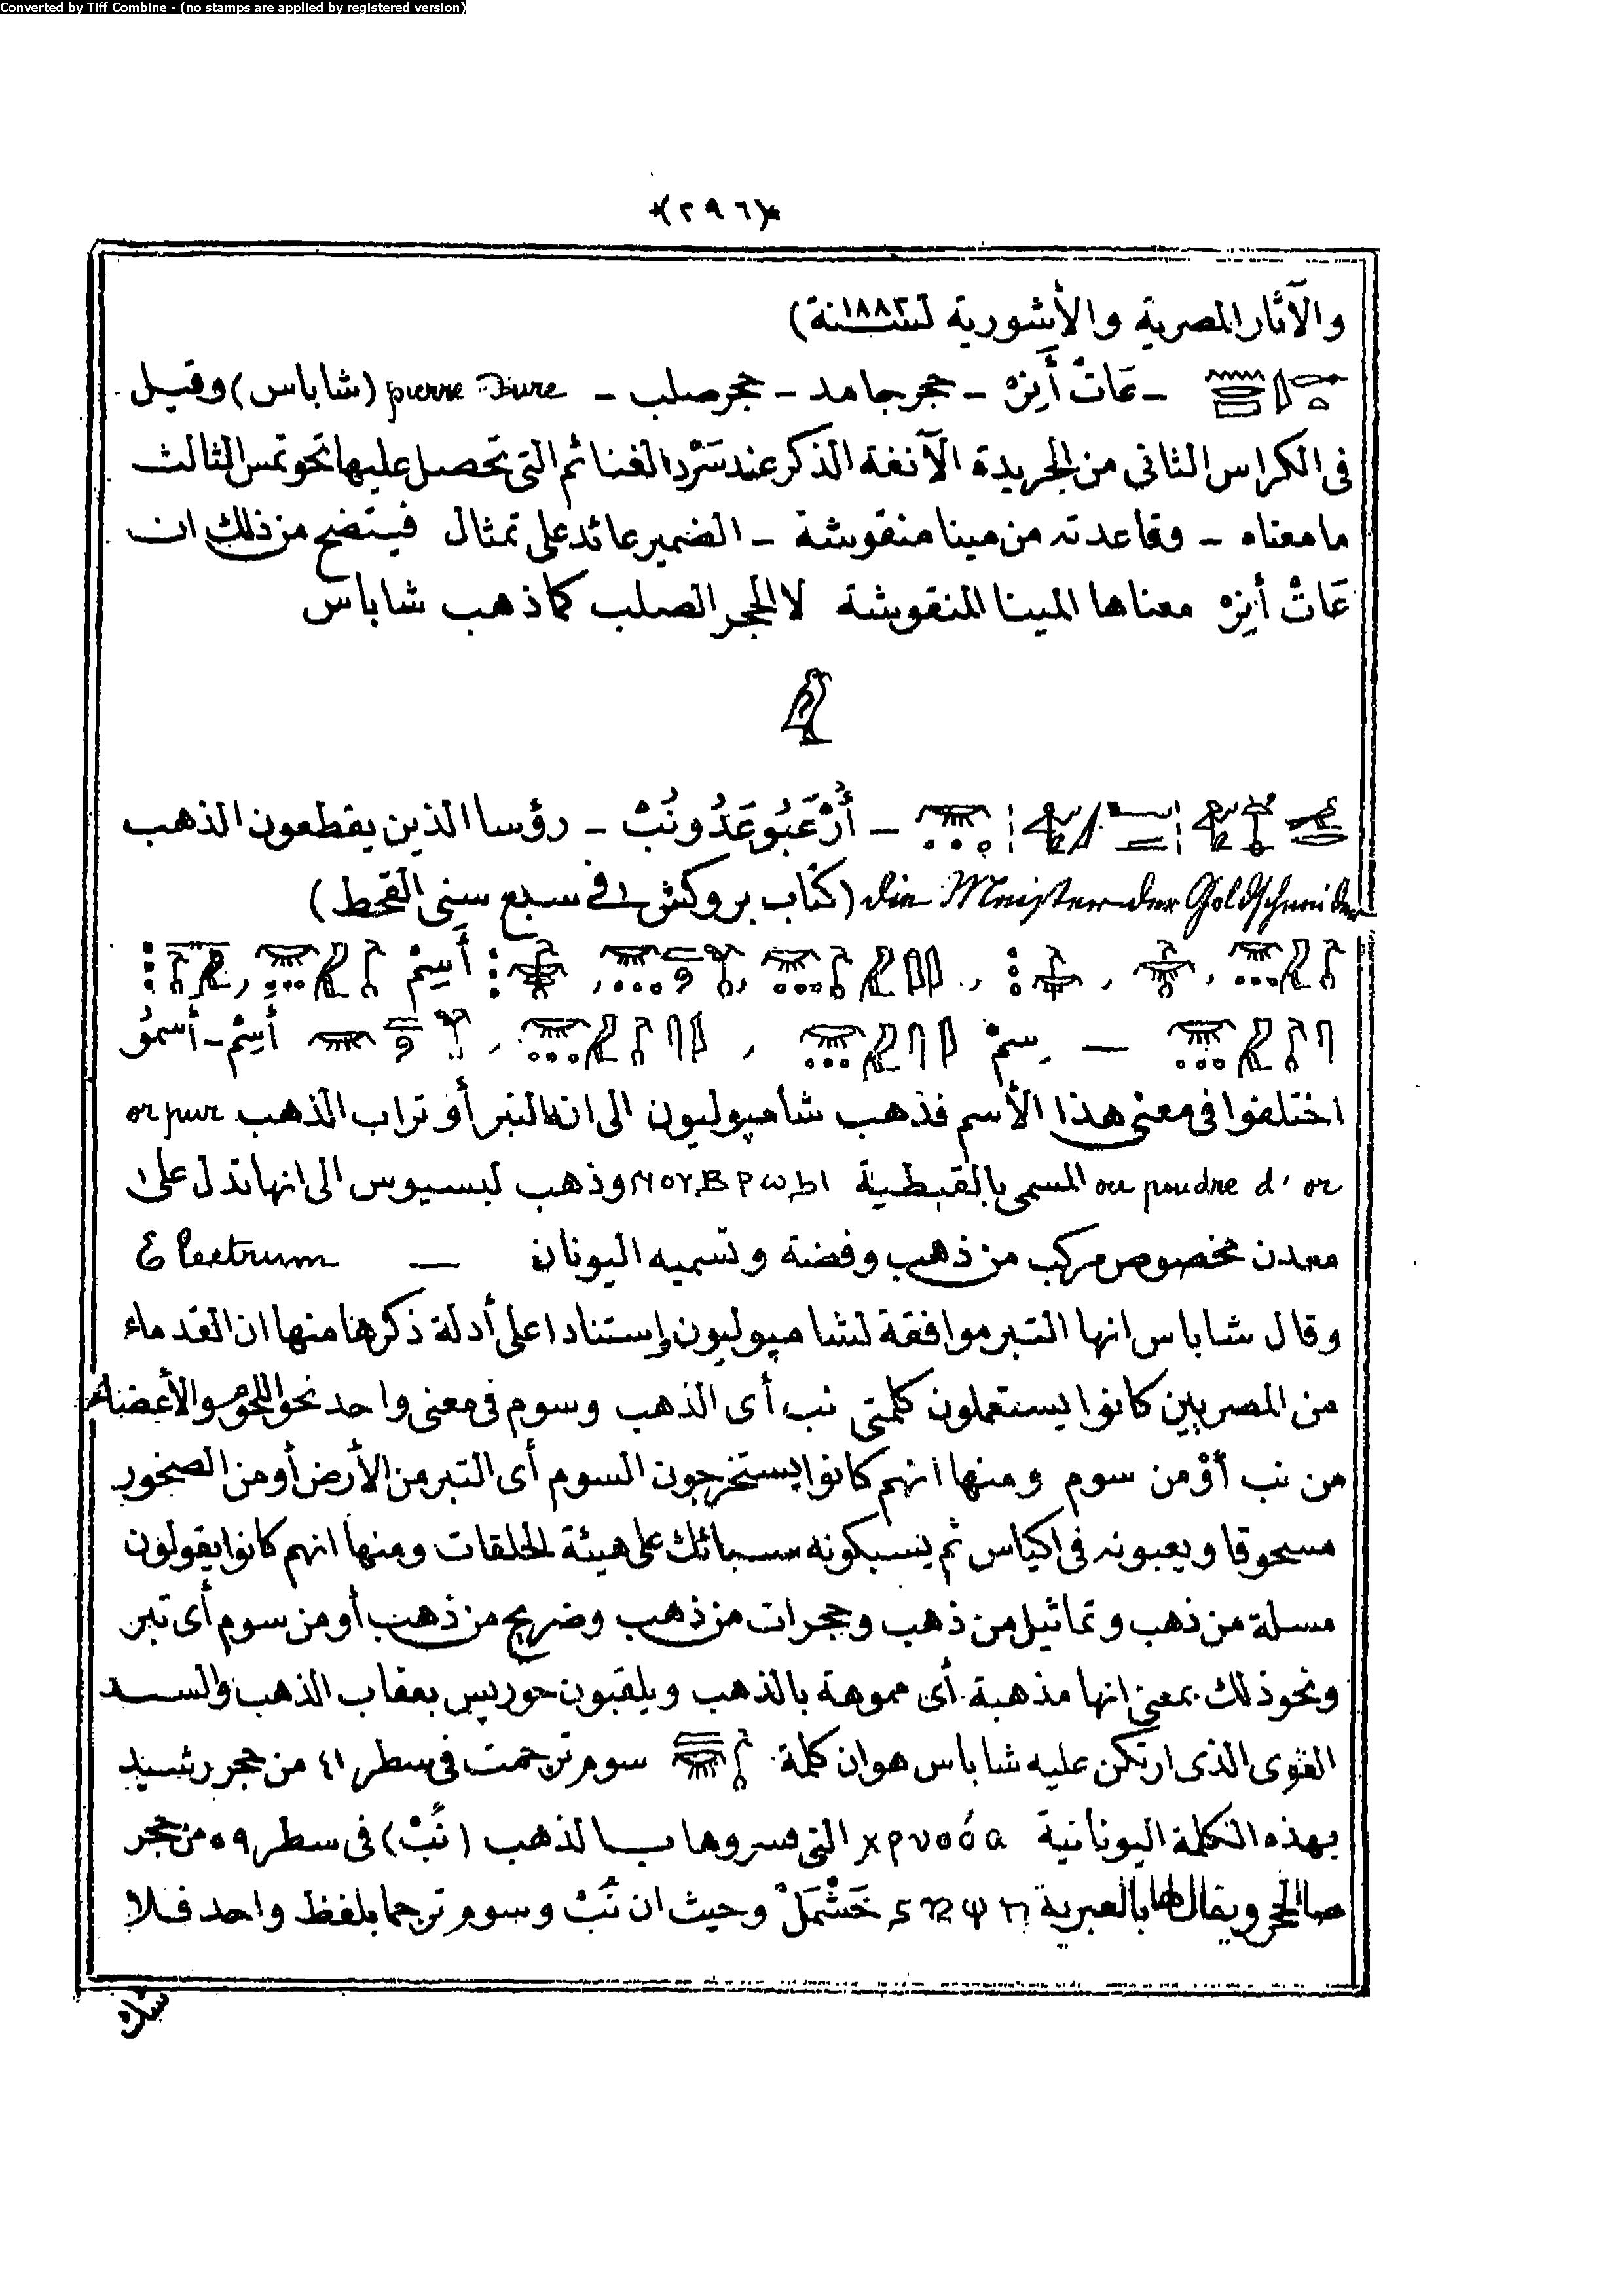 Converted by Tiff Combine - (no stamps are applied by registered version)
*(٢٩٦)*
والآثار المصرية والأشورية لسنة ١٨٨٢)
ـ عَاتْ أَنِرْه ـ حجر جامد ـ حجر صلب ـ pierre Dure (شاباس) وقيل
فى الكراس الثانى من الجريدة الآنفة الذكر عند سَرْد الغنائم التى تحصل عليها تحوتمس الثالث
ما معناه ـ وقاعدته من مينا منقوشة ـ الضمير عائد على تمثال فيتضح من ذلك ان
عَاتْ أَنِرْه معناها المينا المنقوشة لا الحجر الصلب كما ذهب شاباس
ـ أُرْعَبُو عَدُو نُبْ ـ رؤسا الذين يقطعون الذهب
die Meister der Goldschneider (كتاب بروكش فى سبع سنى القحط)
أَسِمْ
ـ سِمْ أَسِمْ ـ أسمُو
اختلفوا فى معنى هذا الأسم فذهب شامپوليون الى انه التبر أو تراب الذهب or pur
ou poudre d'or المسمى بالقبطية وذهب لبسيوس الى انها تدل على
معدن مخصوص مركب من ذهب وفضة وتسميه اليونان — Electrum
وقال شاباس انها التبر موافقة لشامپوليون وإستنادا على أدلة ذكرها منها ان القدماء
من المصريين كانوا يستعملون كلمتى نب أى الذهب وسوم فى معنى واحد نحو اللحوم والأعضاء
من نب أوْ من سوم ومنها انهم كانوا يستخرجون السوم أى التبر من الأرض أو من الصخور
مسحوقا ويعبونه فى اكياس ثم يسبكونه سبائك على هيئة الحلقات ومنها انهم كانوا يقولون
مسلة من ذهب وتماثيل من ذهب وحجرات من ذهب وضريح من ذهب أو من سوم أى تبر
ونحو ذلك بمعنى انها مذهبة أى مموهة بالذهب ويلقبون حوريس بعقاب الذهب والسند
القوى الذى ارتكن عليه شاباس هو ان كلمة سوم ترجمت فى سطر ٤١ من حجر رشيد
بهذه الكلمة اليونانية χρυσόα التى فسروها بالذهب (نُبْ) فى سطر ٥٩ من حجر
صا الحجر ويقال لها بالعبرية خَشْمَلْ وحيث ان نُبْ وسوم ترجما بلفظ واحد فلا
شك